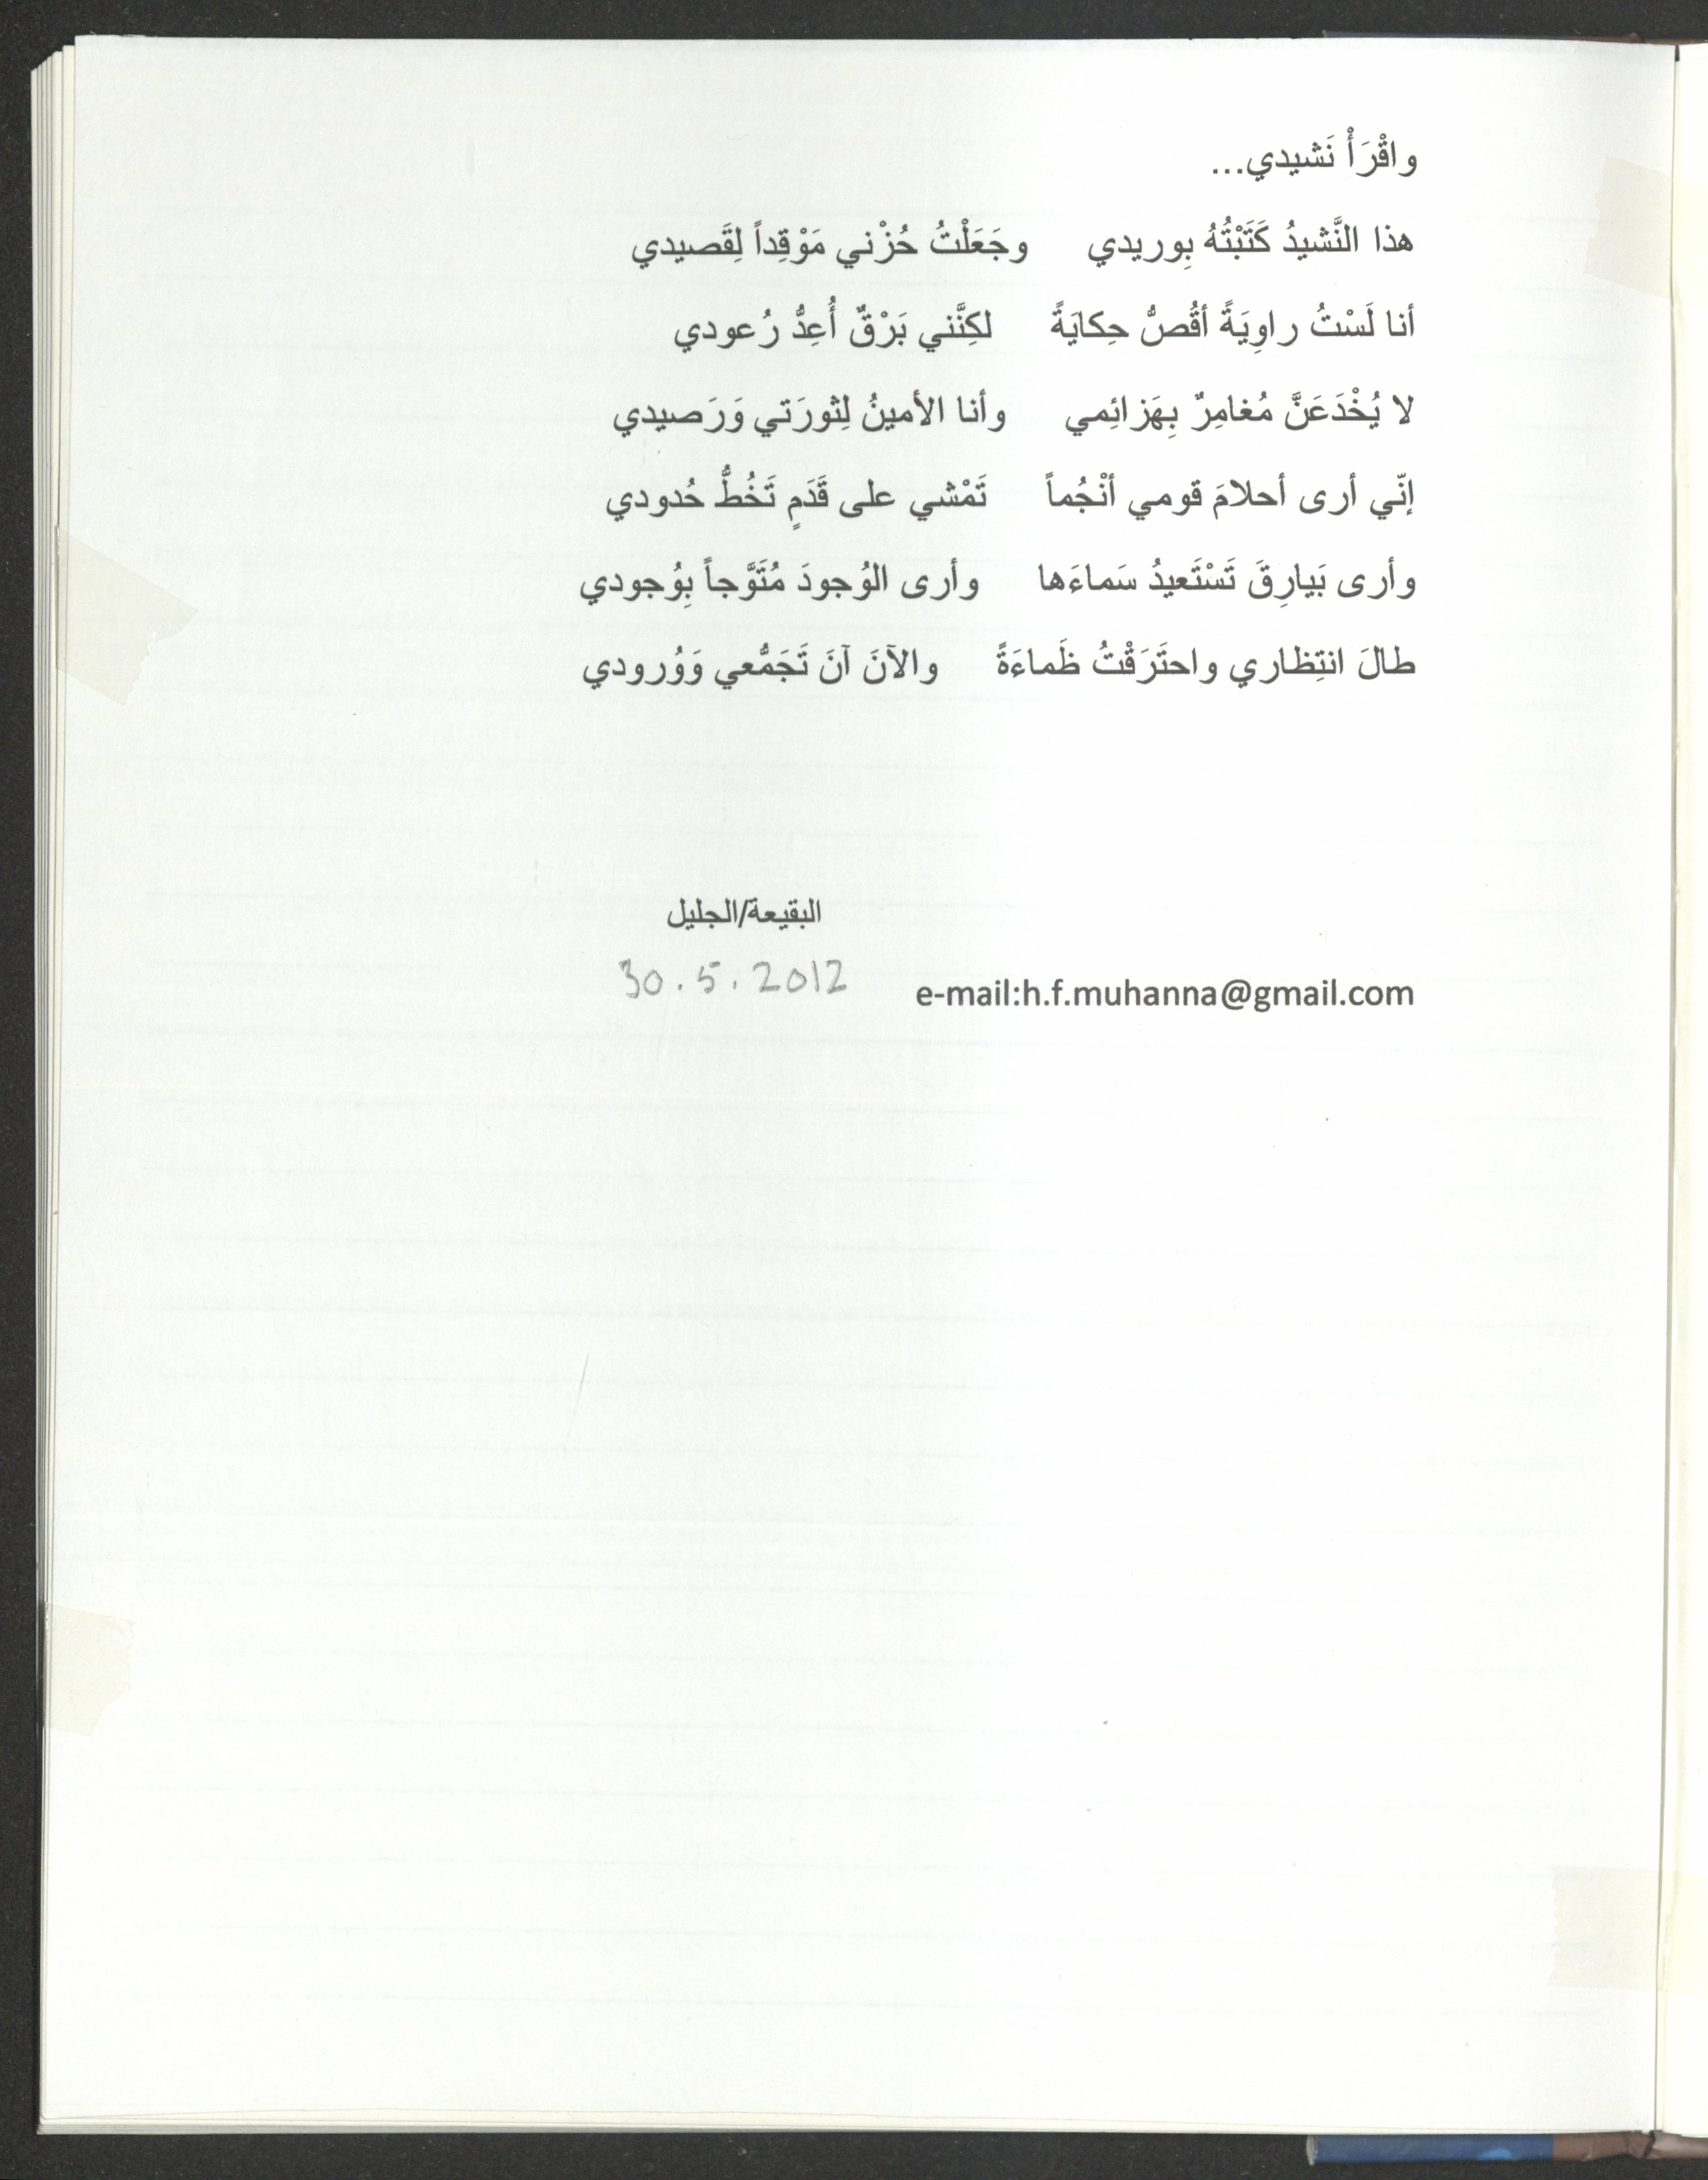 واقْرَأْ نَشيدي...
هذا النَّشيدُ كَتَبْتُهُ بِوريدي وجَعَلْتُ حُزْني مَوْقِداً لِقَصيدي
أنا لَسْتُ راوِيَةً أقُصُّ حِكايَةً لكِنَّني بَرْقٌ أُعِدُّ رُعودي
لا يُخْدَعَنَّ مُغامِرٌ بِهَزائِمي وأنا الأمينُ لِثورَتي وَرَصيدي
إنّي أرى أحلامَ قومي أنْجُماً تَمْشي على قَدَمٍ تَخُطُّ حُدودي
وأرى بَيارِقَ تَسْتَعيدُ سَماءَها وأرى الوُجودَ مُتَوَّجاً بِوُجودي
طالَ انتِظاري واحتَرَقْتُ ظَماءَةً والآنَ آنَ تَجَمُّعي وَوُرودي
البقيعة/الجليل
e-mail:h.f.muhanna@gmail.com 30.5.2012